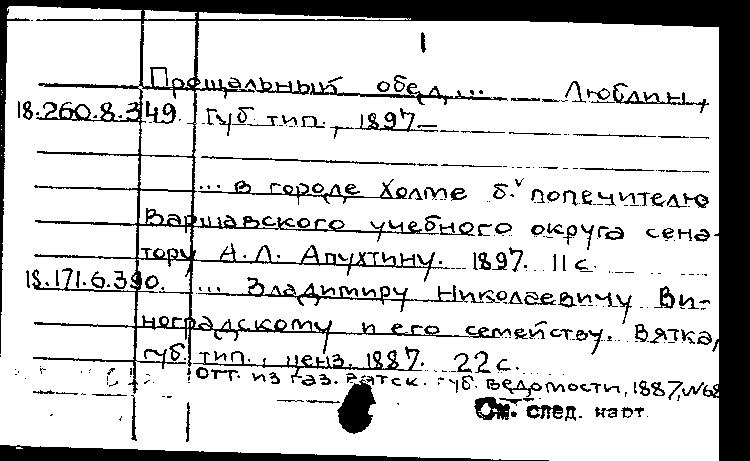 1
Прощальный обед... Люблин,
18.260.8.349. Губ. тип., 1897—
... в городе Холме б. попечителю
Варшавского учебного округа сена-
тору А.Л. Апухтину. 1897. 11 с.
18.171.6.390. ... Владимиру Николаевичу Ви-
ноградскому и его семейству. Вятка,
губ. тип., ценз. 1887. 22 с.
Отт. из газ. Вятск. губ. ведомости, 1887, №68
См. след. карт.